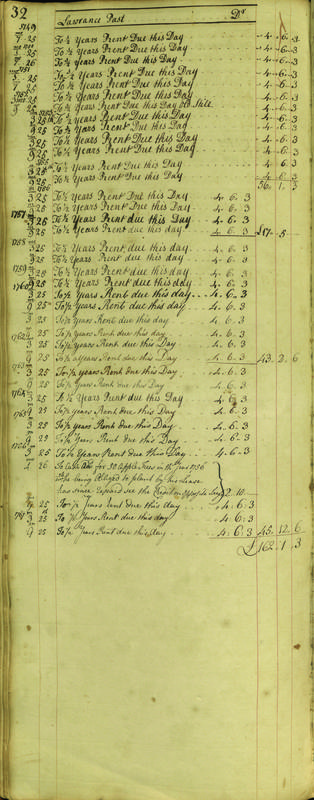 32 Lawrance Past Dr
1749
7 25 To ½ Years Rent Due this Day 4 6 3
25 To ½ Years Rent Due this Day 4 6 3
1750
7 26 To ½ Years Rent Due this Day 4 6 3
1751
25 To ½ Years Rent Due this Day 4 6 3
25 To ½ Years Rent Due this Day 4 6 3
1752
25 To ½ Years Rent Due this Day 4 6 3
3 25 To ½ Years Rent Due this Day Old Stile 4 6 3
25 To ½ Years Rent Due this Day 4 6 3
9 25 To ½ Years Rent Due this Day 4 6 3
3 25 To ½ Years Rent Due this Day 4 6 3
25 To ½ Years Rent Due this Day 4 6 3
To ½ Years Rent Due this Day 4 6 3
25 To ½ Years Rent Due this Day 4 6 3
56 1 3
3 25 To ½ Years Rent Due this Day 4 6 3
25 To ½ Years Rent Due this Day 4 6 3
1757
25 To ½ Years Rent due this Day 4 6 3
25 To ½ Years Rent due this day 4 6 3 £17 5
1758
3 25 To ½ Years Rent due this day 4 6 3
25 To ½ Years Rent due this day 4 6 3
1759
25 To ½ Years Rent due this day 4 6 3
25 To ½ Years Rent due this day 4 6 3
1760
25 To ½ Years Rent due this day 4 6 3
25 To ½ Years Rent due this day 4 6 3
25 To ½ Years Rent due this day 4 6 3
1762
25 To ½ Years Rent due this day 4 6 3
3 25 To ½ Years Rent due this Day 4 6 3
25 To ½ Years Rent due this Day 4 6 3 43 2 6
1763
3 25 To ½ Years Rent due this Day 4 6 3
9 25 To ½ Years Rent due this Day 4 6 3
1764
3 25 To ½ Years Rent due this Day 4 6 3
9 29 To ½ Years Rent due this Day 4 6 3
1765
3 25 To ½ Years Rent due this Day 4 6 3
9 29 To ½ Years Rent due this Day 4 6 3
1766
3 25 To ½ Years Rent due this Day 4 6 3
26 To Cash for 50 Apple Trees in the Year 1756
he being Obliged to plant by his Lease
2 10
25 To ½ Years Rent due this day 4 6 3
3 25 To ½ Years Rent due this day 4 6 3
9 25 To ½ Years Rent due this day 4 6 3 45 12 6
£162 1 3